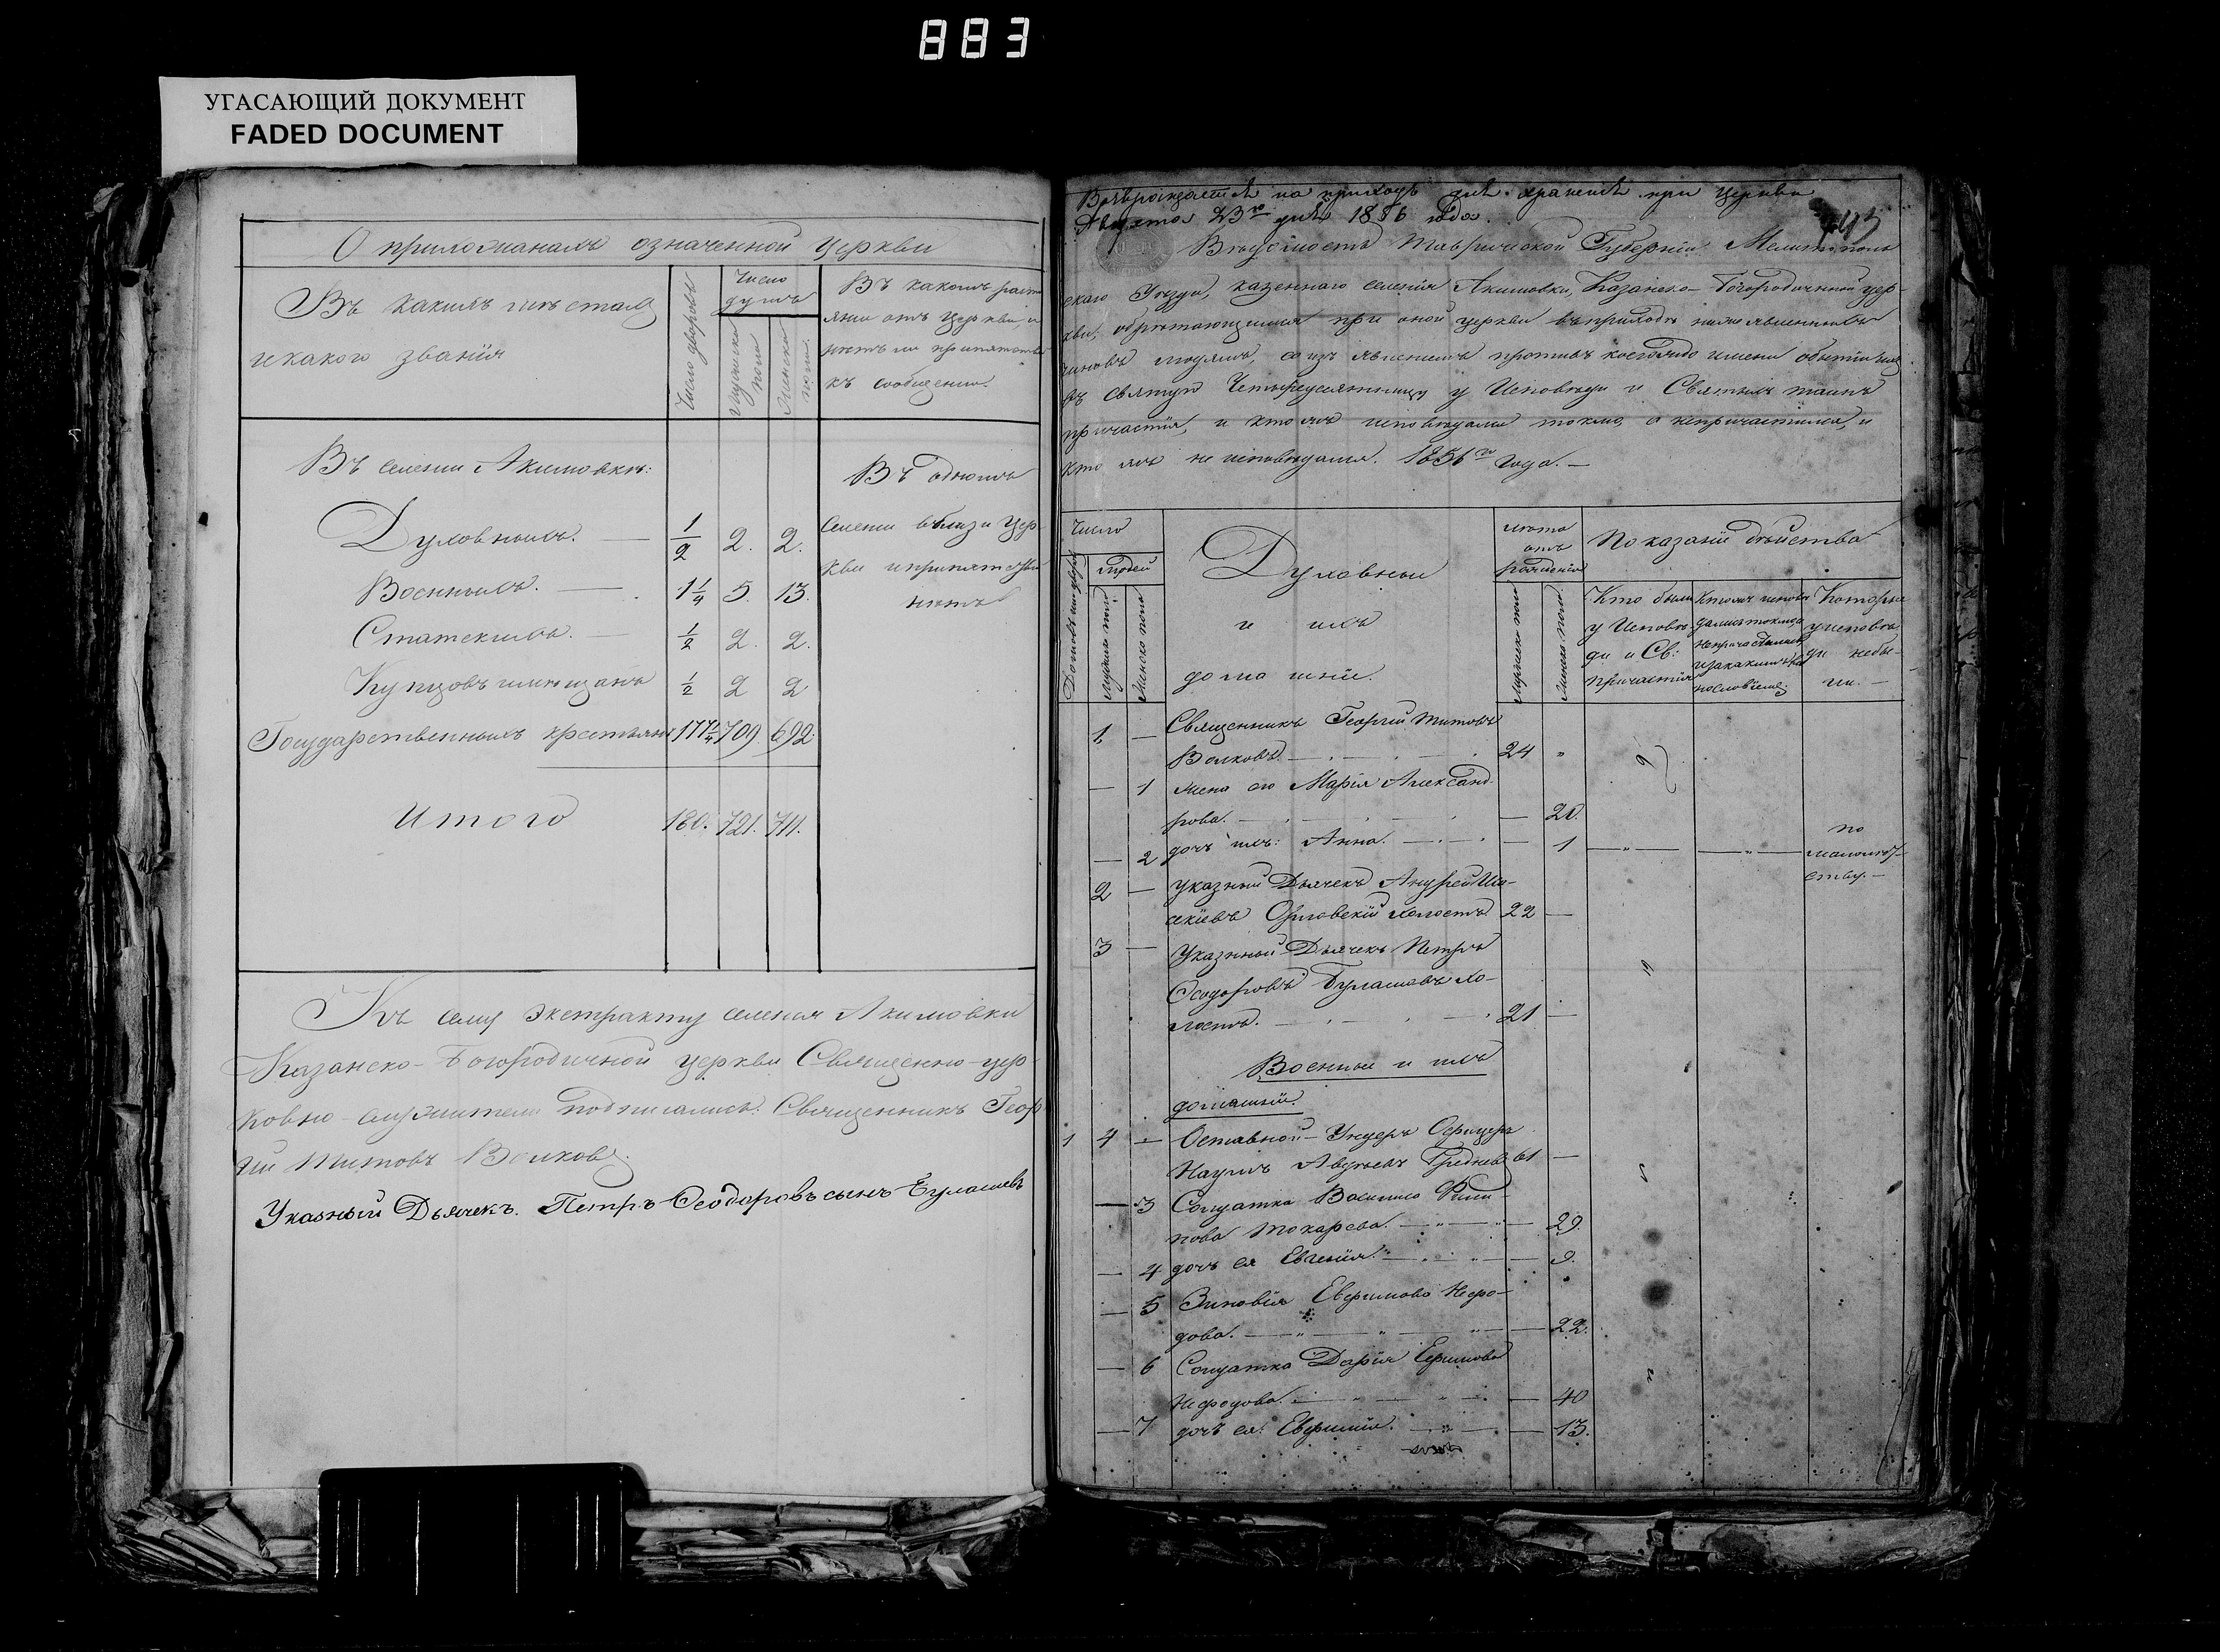 883
УГАСАЮЩИЙ ДОКУМЕНТ
FADED DOCUMENT
О прихожанахъ означенной Церкви
Въ какихъ мѣстахъ
и какого званія
Число дворовъ
Число
душъ
Мужска
пола
Женска
пола.
Въ какомъ разсто
яніи отъ Церкви, и
нѣтъ ли препятств
къ сообщенію.
Въ селеніи Акимовкѣ:
Духовныхъ. — 1/2 2. 2.
Военныхъ. — 1 1/4 5. 13.
Статскихъ. — 1/2 2. 2.
Купцовъ и мѣщанъ 1/2 2 2
Государственныхъ крестьянъ 177 1/4 709. 692.
Итого 180. 721. 711.
Въ одномъ
селеніи вблизи Цер-
кви и препятствій
нѣтъ
Къ сему экстракту селенія Акимовки
Казанско-Богородичной церкви Священно-цер-
ковно-служители подписались: Священникъ Геор-
гій Титовъ Волковъ.
Указный Дьячекъ. Петръ Ѳеодоровъ сынъ Булашевъ
Возвращается на приходъ для храненія при Церкви
Августа 23го дня 1856 года.
Вѣдомость Таврической Губерніи Мелитополь
скаго Уѣзда, казеннаго селенія Акимовки, Казанско-Богородичной цер-
кви, обрѣтающимся при оной церкви въ приходѣ нижеявленныхъ
чиновъ людямъ, со изъявленіемъ противъ коегождо имени о бытіи ихъ
въ святую Четыредесятницу у Исповѣди и Святыхъ таинъ
причастія, и кто же исповѣдался токмо, а не причастился, и
кто же не исповѣдался. 1856го года. —
Число
Людей
Мужеска пола
Женска пола
Духовныи
и ихъ
домашніи.
лѣта
отъ
рожденія
Мужеска пола
Женска пола
Показаніи дѣйства
Кто были
у Исповѣ-
ди и Св:
Причастія
Кто же исповѣ
дались токмо
не причастились
и за какимъ ви
нословіемъ
Которые
у исповѣ
ди небы-
ли. —
1 — Священникъ Георгій Титовъ
Волковъ. — 24 "
— 1 жена его Марія Александ-
рова. — — 20.
— 2 дочь ихъ: Анна. — — 1 — " — — " — по
малолѣт-
ству. —
2 — указный Дьячекъ Андрей Иса-
акіевъ Орловскій холостъ 22 —
3 — Указный Дьячекъ Петръ
Ѳеодоровъ Булашевъ хо-
лостъ. — 21 —
Военныи и ихъ
домашніи.
1 4 — Отставной Ундеръ Офицеръ
Наумъ Авдѣевъ Гредневъ 61 —
— 3 Солдатка Василиса Фили-
пова Токарева. — — 29.
— 4 дочь ея Евгенія. — — 9.
— 5 Зиновія Ефимова Нефо-
дова. — — 22.
— 6 Солдатка Дарія Ефимова
Нефодова. — — 40
— 7 дочь ея: Евфимія. — — 13.